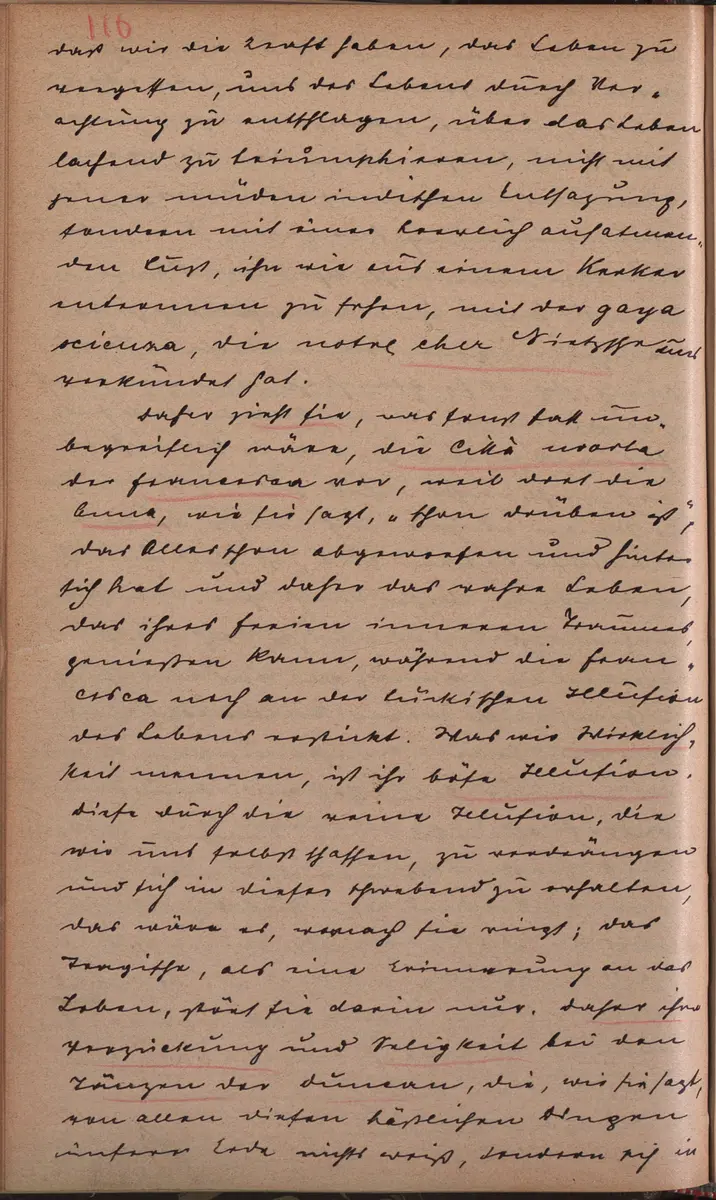 116
daß wir die Kraft haben, das Leben zu
vergessen, uns des Lebens durch Ver-
achtung zu entschlagen, über das Leben
lachend zu triumphieren, nicht mit
jener müden indischen Entsagung,
sondern mit einer herrlich aufatmen-
den Lust, ihr wie aus einem Kerker
entronnen zu sehen, mit der gaya
scienza, die notre cher Nietzsche uns
verkündet hat.
Daher zieht sie, was sonst fast un-
begreiflich wäre, die Città morta
der Francesca vor, weil dort die
Anna, wie sie sagt, „schon drüben ist",
das Alles schon abgeworfen und hinter
sich hat und daher das wahre Leben,
das ihres freien inneren Traumes,
genießen kann, während die Fran-
cesca noch an der tückischen Illusion
des Lebens erstickt. Was wir Wirklich-
keit nennen, ist ihr böse Illusion.
Diese durch die reine Illusion, die
wir uns selbst schaffen, zu verdrängen
und sich in dieser schwebend zu erhalten,
das wäre es, wonach sie ringt; das
Tragische, als eine Erinnerung an das
Leben, stört sie darin nur. Daher ihre
Verzückung und Seligkeit bei den
Tänzen der Duncan, die, wie sie sagt,
von allen diesen häßlichen Dingen
unserer Erde nichts weiß, sondern sich in